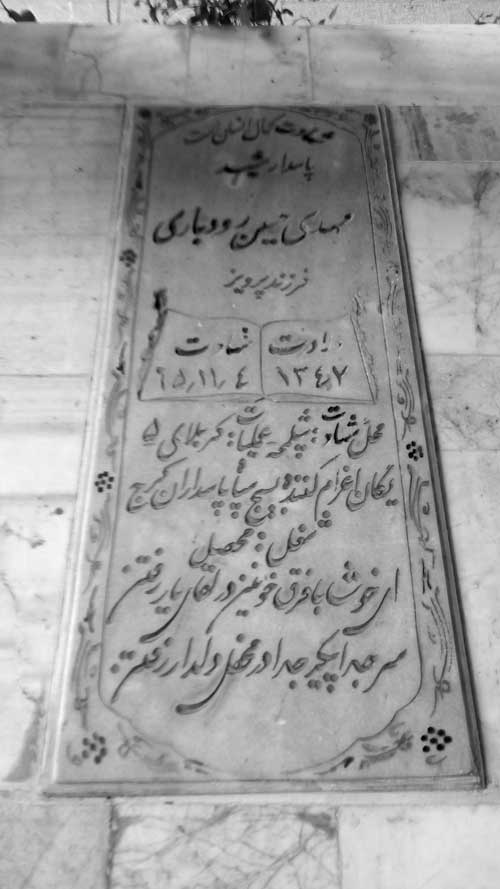 شهادت کمال انسان است
پاسدار شهید
مهدی تیمن رودباری
فرزند پرویز
ولادت
۱۳۴۷
شهادت
۶۵/۱۱/۴
محل شهادت: شلمچه عملیات: کربلای ۵
یگان اعزام کننده: بسیج سپاه پاسداران کرج
شغل: محصل
ای خوشا با فرق خونین در لقای یار رفتن
سر جدا پیکر جدا در محفل دلدار رفتن